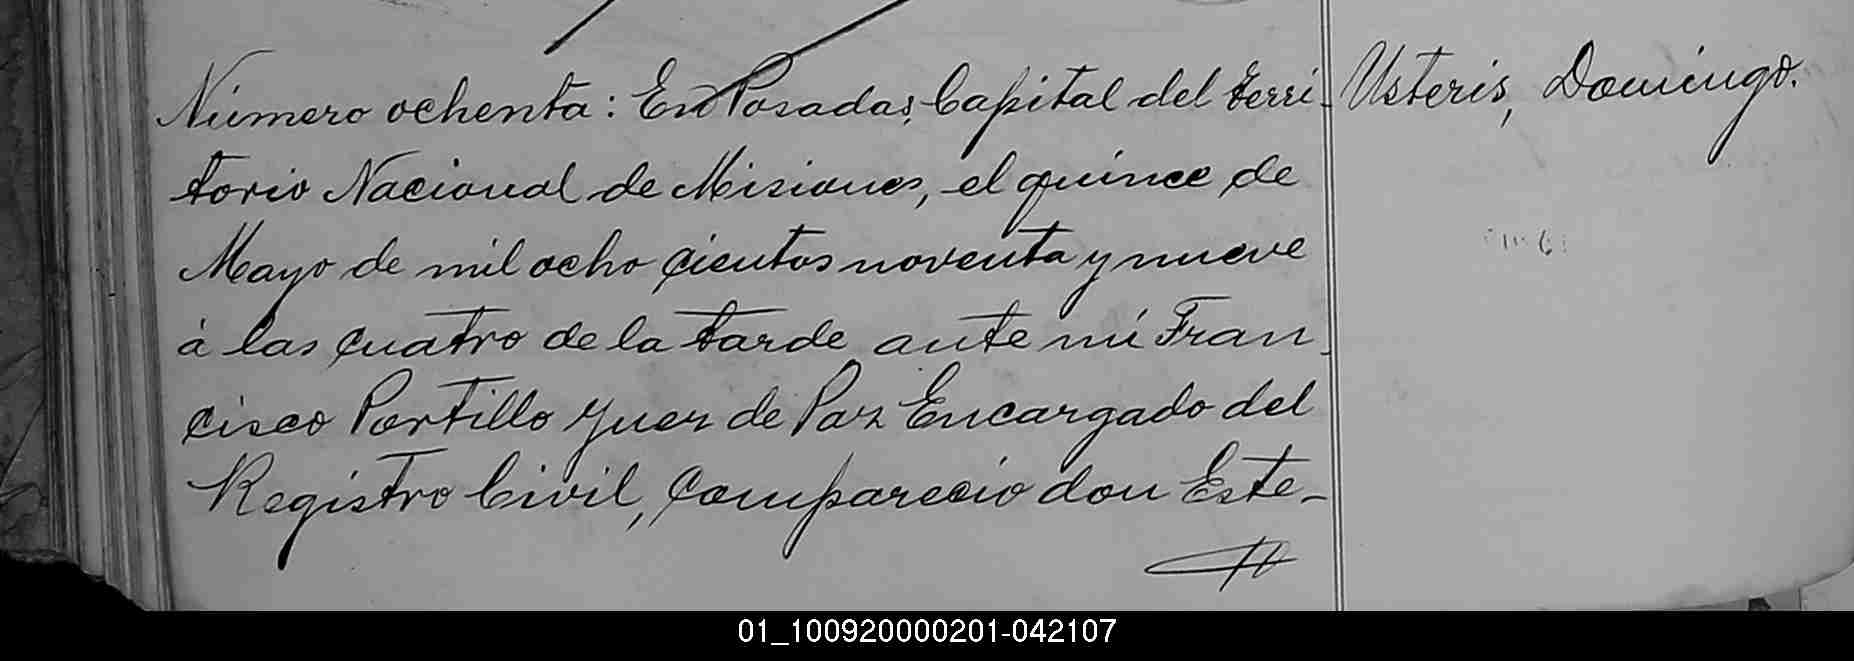 Número ochenta: En Posadas, Capital del terri-
torio Nacional de Misiones, el quince de
Mayo de mil ocho cientos noventa y nueve
á las cuatro de la tarde ante mí Fran-
cisco Portillo Juez de Paz Encargado del
Registro Civil, compareció don Este-
Usteris, Domingo.
01_100920000201-042107